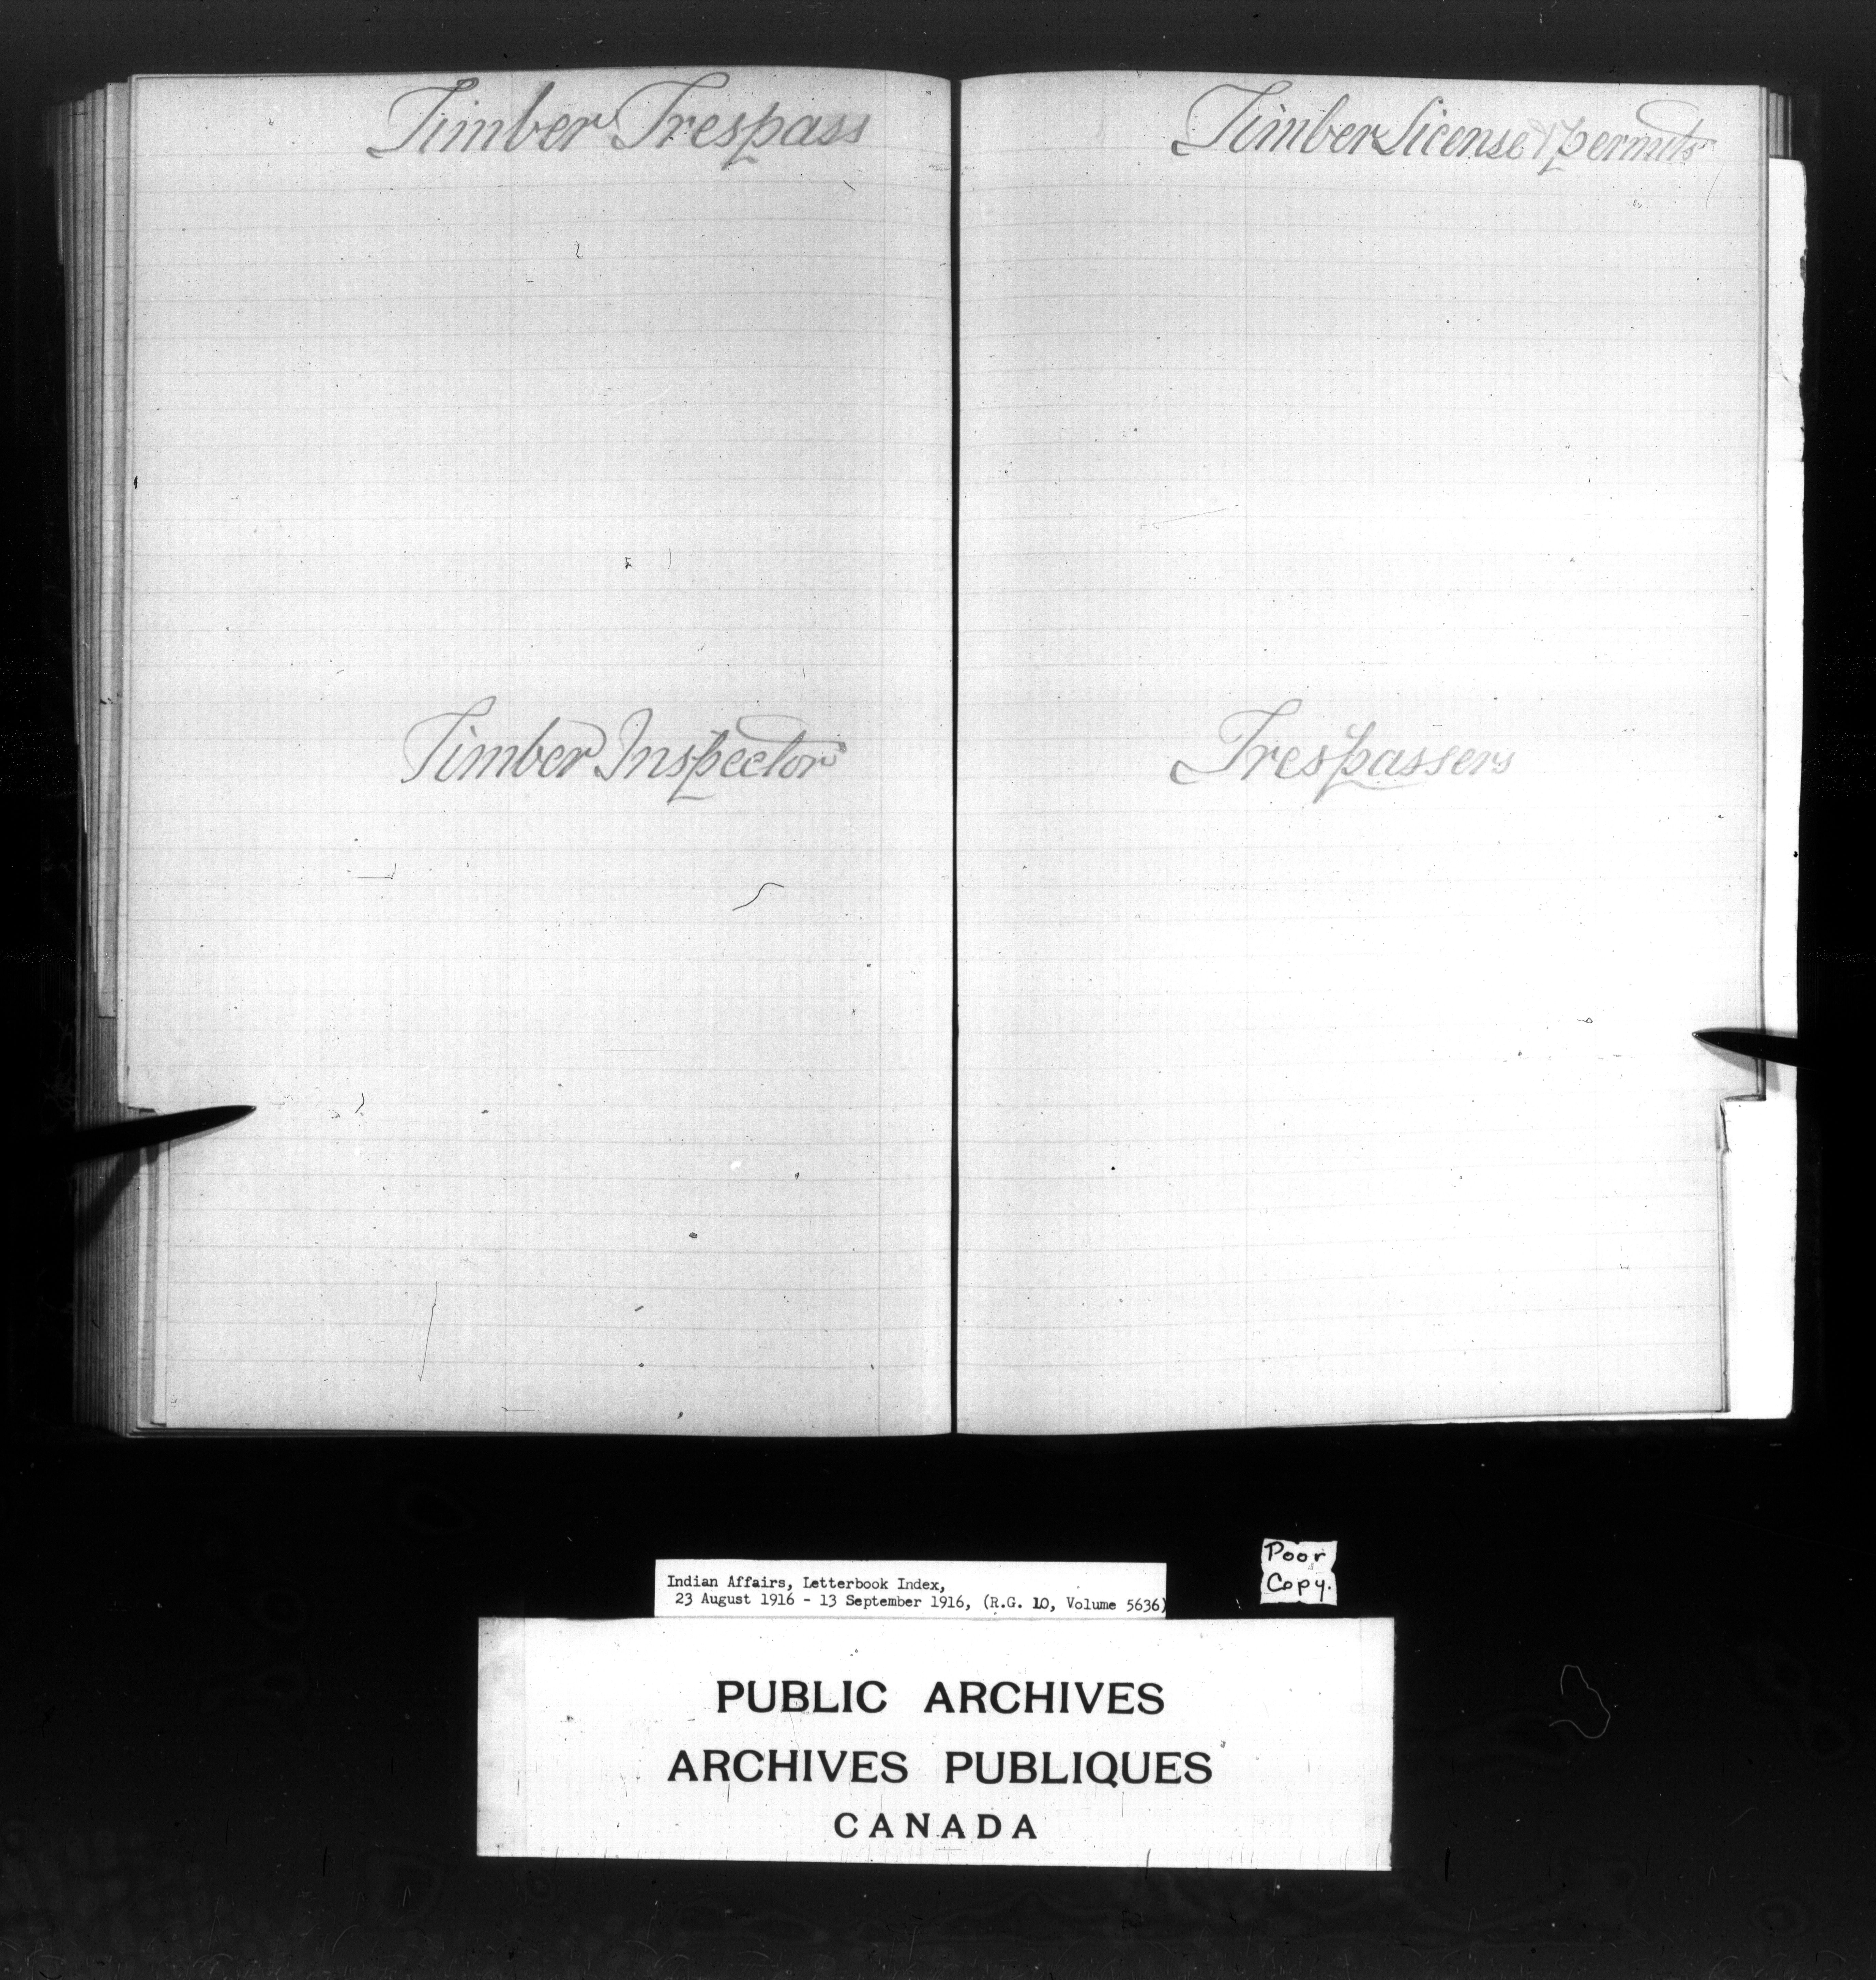 Timber Trespass
Timber Inspector
Timber License & permits
Trespassers
Poor
Copy.
Indian Affairs, Letterbook Index,
23 August 1916 - 13 September 1916, (R.G. 10, Volume 5636)
PUBLIC ARCHIVES
ARCHIVES PUBLIQUES
CANADA